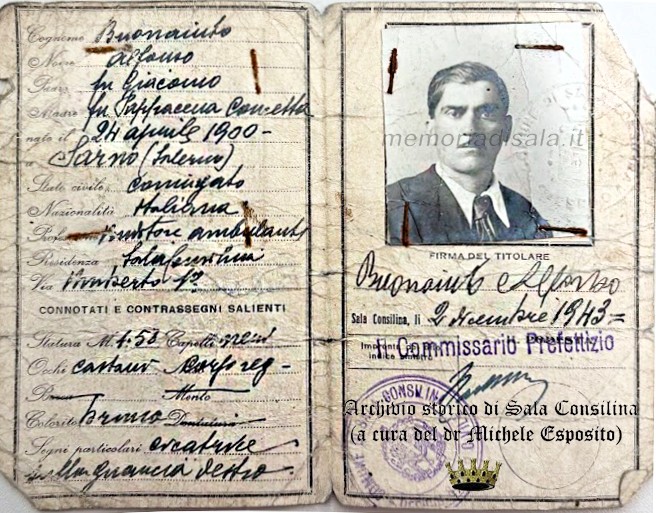 Cognome Buonaiuto
Nome Alfonso
Padre fu Giacomo
Madre fu Pappacena Concetta
nato il 24 aprile 1900-
a Sarno (Salerno)
Stato civile, coniugato
Nazionalità Italiana
Professione ambulante
Residenza Sala Consilina
Via Umberto 1º
CONNOTATI E CONTRASSEGNI SALIENTI
Statura M. 1.58 Capelli neri
Occhi castani Corp. reg-
Mento
Colorito bruno Dentatura
Segni particolari cicatrice
sulla guancia destra
memoriadisala.it
FIRMA DEL TITOLARE
Buonaiuto Alfonso
Sala Consilina, li 2 dicembre 1943=
Impronta del dito
indice sinistro
Il Commissario Prefettizio
Archivio storico di Sala Consilina
(a cura del dr Michele Esposito)